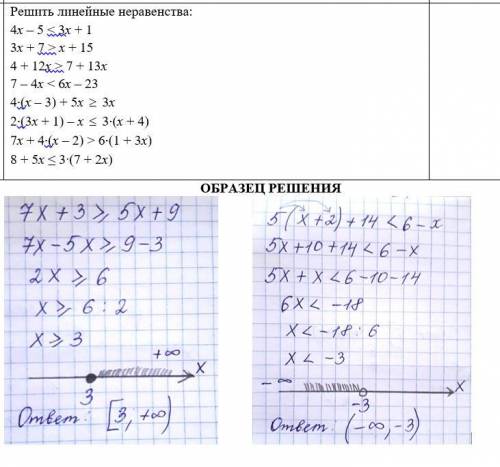 Решить линейные неравенства:
4х – 5 ≤ 3х + 1
3х + 7 ≥ х + 15
4 + 12х ≥ 7 + 13х
7 – 4х < 6х – 23
4·(х – 3) + 5х ≥ 3х
2·(3х + 1) – х ≤ 3·(х + 4)
7х + 4·(х – 2) > 6·(1 + 3х)
8 + 5х ≤ 3·(7 + 2х)
ОБРАЗЕЦ РЕШЕНИЯ
7x + 3 ≥ 5x + 9
7x – 5x ≥ 9 – 3
2x ≥ 6
x ≥ 6 : 2
x ≥ 3
+∞
x
3
Ответ: [3, +∞)
5(x + 2) + 14 < 6 – x
5x + 10 + 14 < 6 – x
5x + x < 6 – 10 – 14
6x < –18
x < –18 : 6
x < –3
–∞
x
–3
Ответ: (–∞, –3)